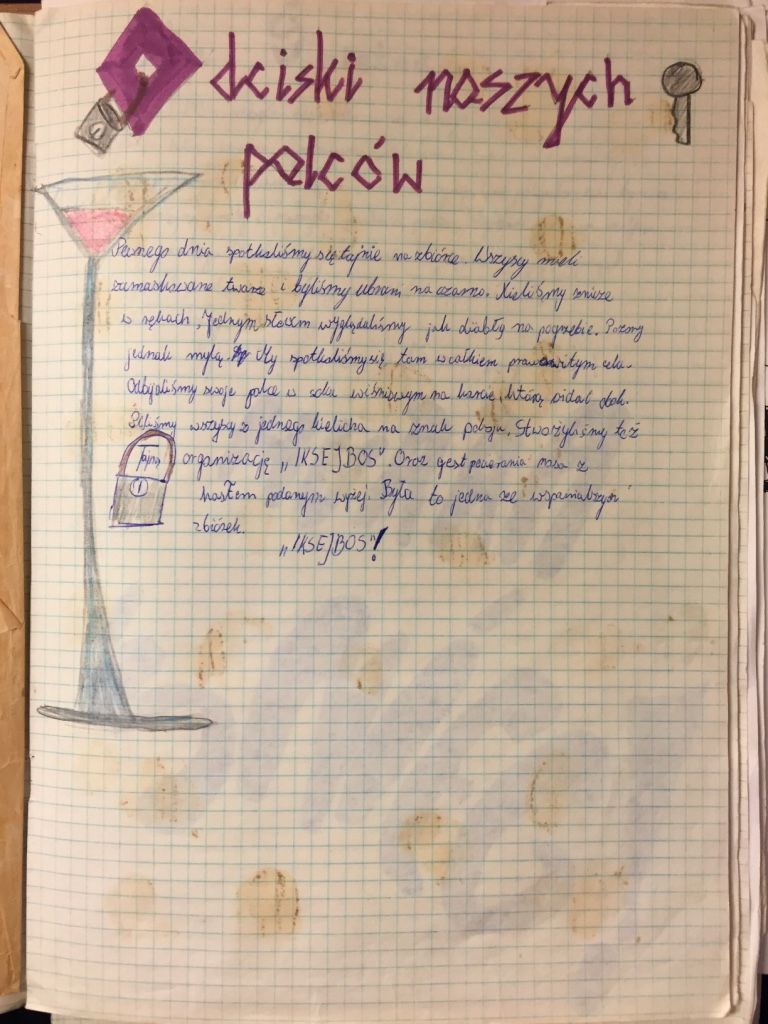 Odciski naszych
palców
Pewnego dnia spotkaliśmy się tajnie na zbiórce. Wszyscy mieli
zamaskowane twarze i byliśmy ubrani na czarno. Mieliśmy znicze
w rękach, Jednym słowem wyglądaliśmy jak diabły na pogrzebie. Pozory
jednak mylą. My spotkaliśmy się tam w całkiem prawowitym celu.
Odbijaliśmy swoje palce w soku wiśniowym na karcie, którą widać obok.
Piliśmy wszyscy z jednego kielicha na znak pokoju. Stworzyliśmy też
Tajna
organizację „IKSEJBOS". Oraz gest pocierania nosa z
hasłem podanym wyżej. Była to jedna ze wspanialszych
zbiórek.
„IKSEJBOS"!